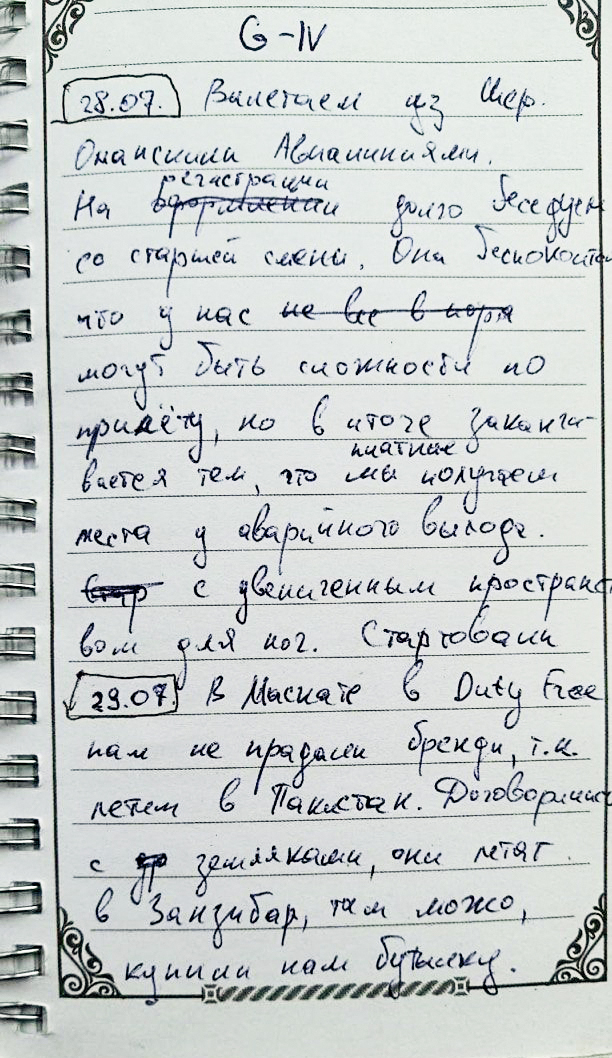 G-IV
28.07. Вылетаем из Шер.
Оманскими Авиалиниями.
регистрации
На оформлении долго беседуем
со старшей смены. Она беспокоится
что у нас не все в поря
могут быть сложности по
прилёту, но в итоге заканчи-
платные
вается тем, что мы получаем
места у аварийного выхода.
Стар с увеличенным пространст
вом для ног. Стартовали
29.07. В Маскате в Duty Free
нам не прадали бренди, т.к.
летим в Пакистан. Договорились
с земляками, они летят
в Занзибар, там можо,
купили нам бутылку.